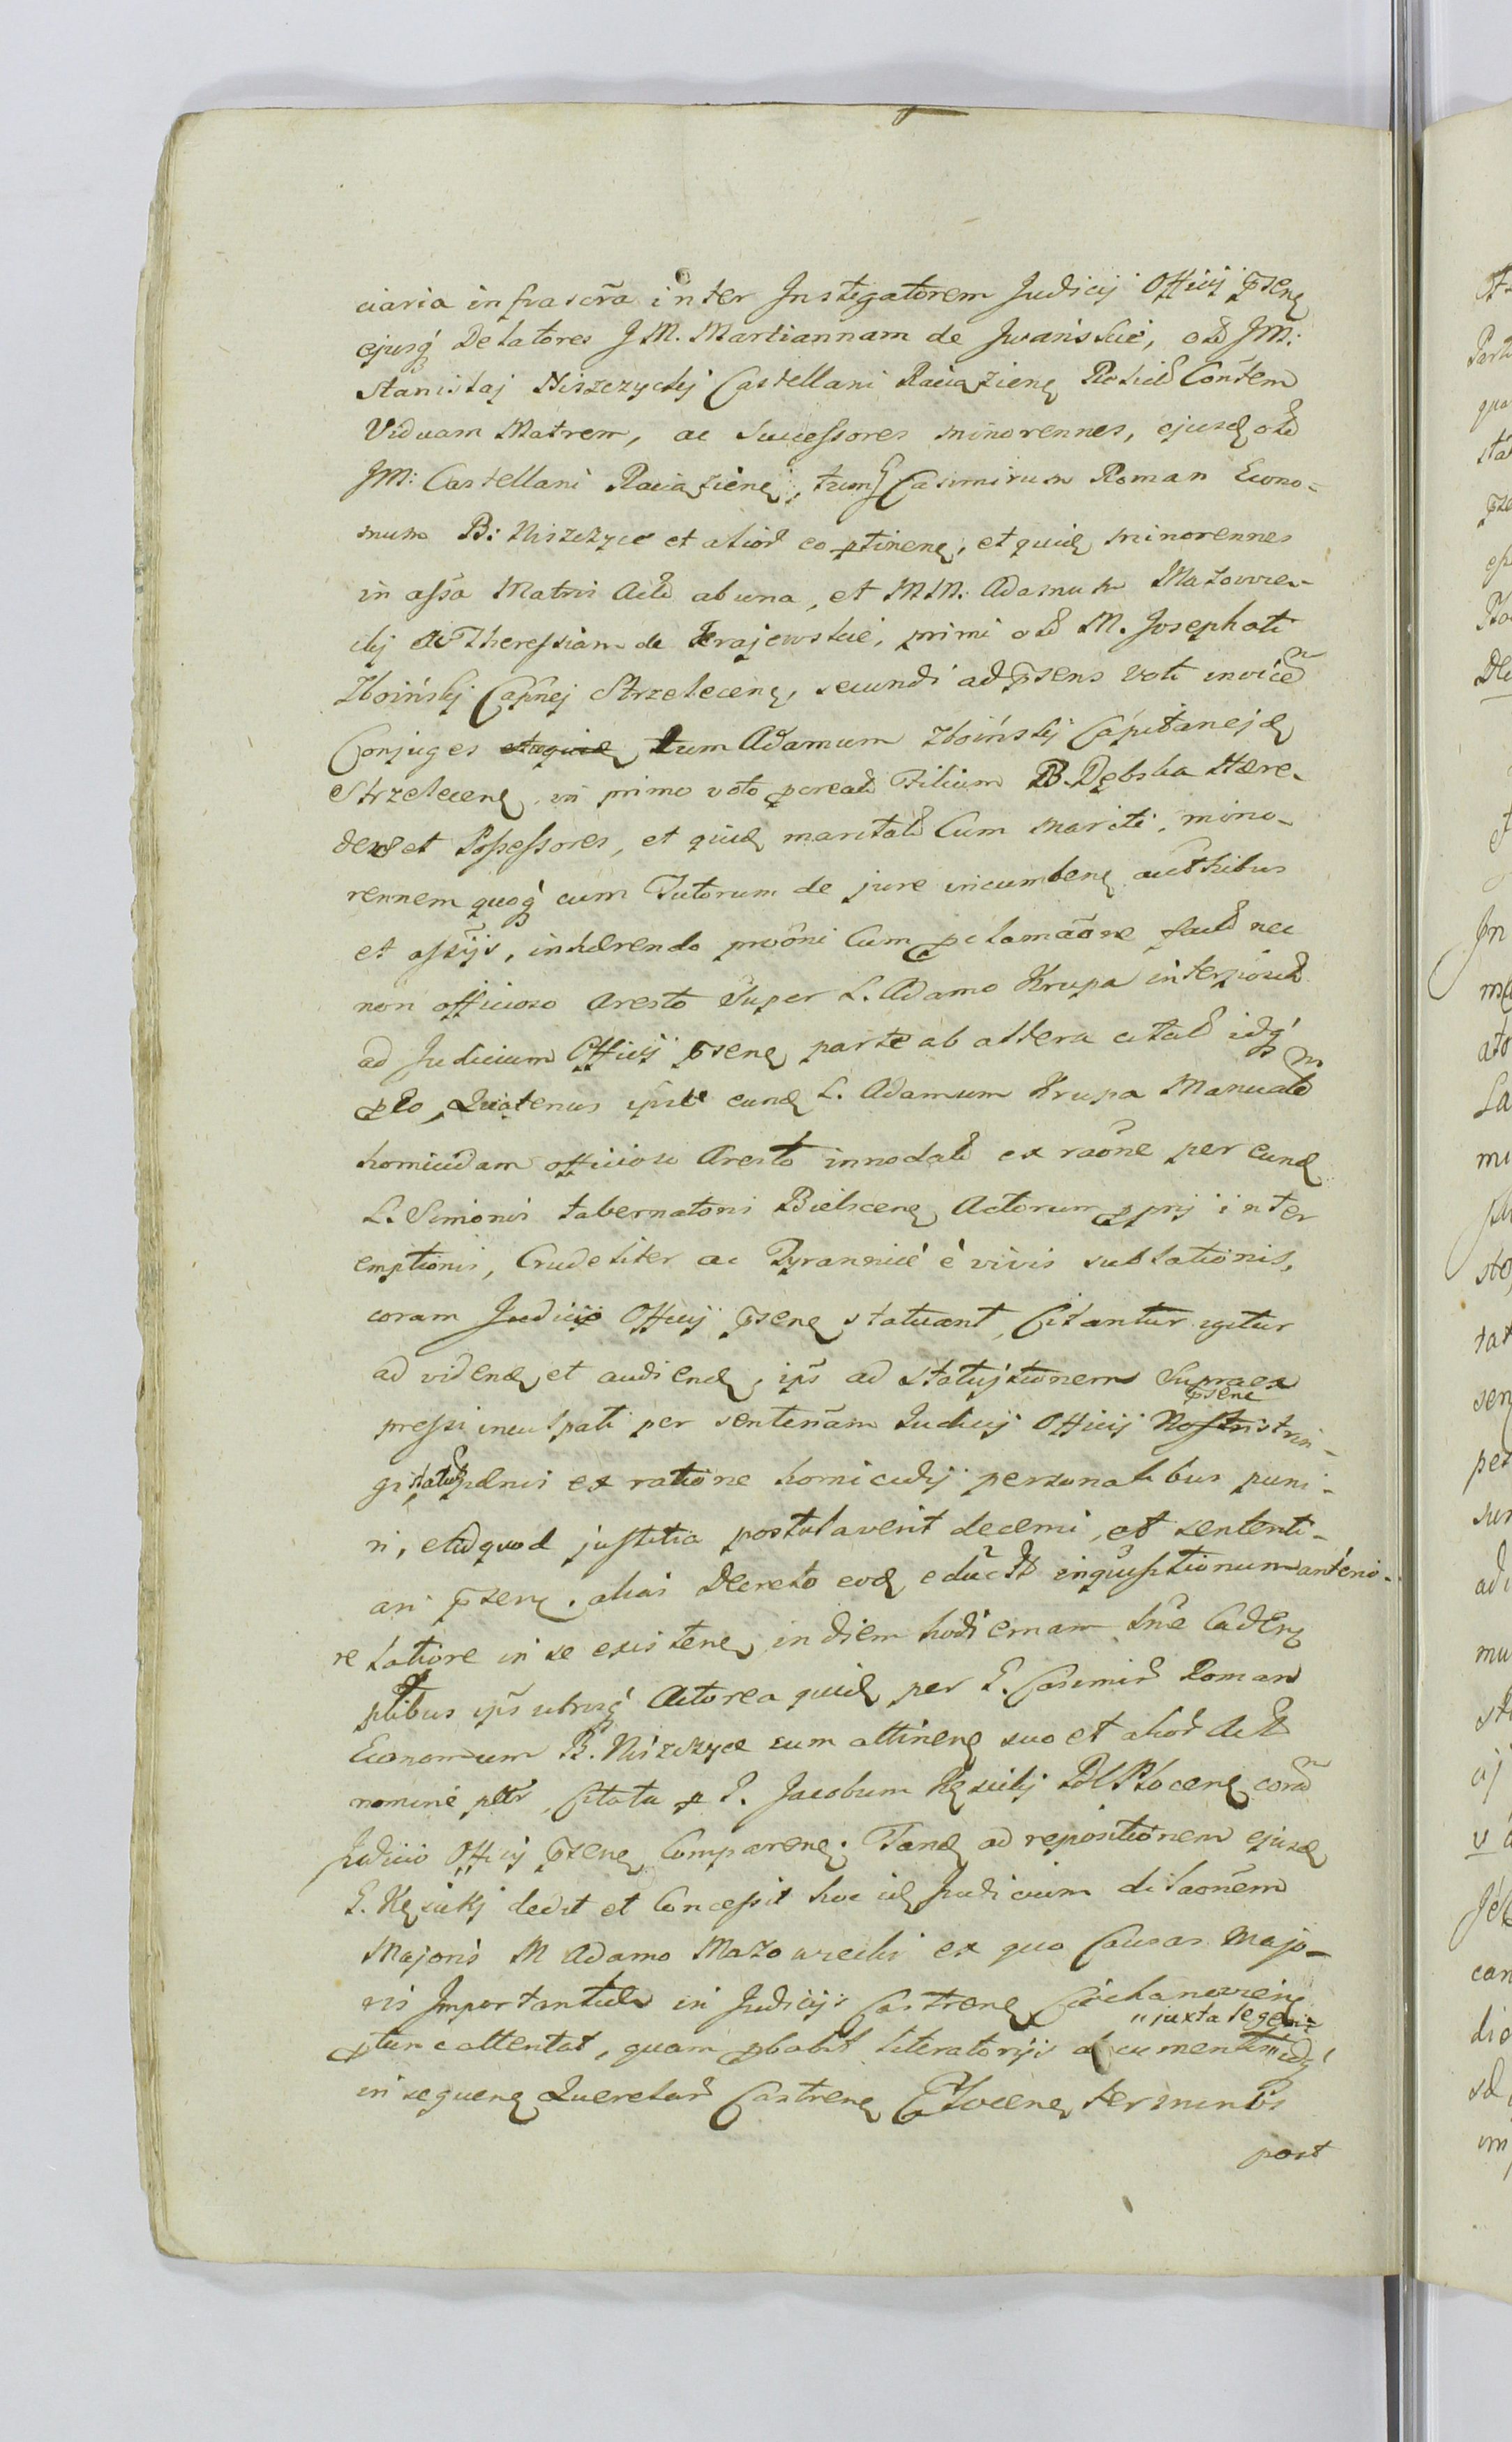 ciaria infrascrã inter Instigatorem Judicij Officij p̃senę
ejusq́ Delatores J M. Martiannam de Iwańskie, olđ JM:
Stanislaj Niszczycki Castellani Raciązienę Relictam Contem
Viduam Matrem, ac Successores minorennes, ejusđ olđ
JM: Castellani Raciązienę, tum G Casimirum Roman Econo-
mum B: Niszczyce et alior̃ eo ptinenę, et quidę minorennes
in assã Matris Actđ ab una, et M M. Adamum Mazowie-
ckj et Theressiam de Krajewskie, primi olđ M. Josephati
Zboiński Capñej Strzelecenę, secundi ad p̃sens voti invicẽ
Conjuges tum Adamum Zboiński Capitanejđ
Strzelecenę, in primo voto pcreatđ Filium B. Dębska Hære-
des et Possessores, et quidę maritatđ Cum mariti, mino-
rennem quoq́ cum Tutorum de jure incumbenę aucthibus
et assijs, inhærendo prõoni Cum pclamaõne factđ nec
non officioso Aresto super L. Adamo Krupa interposit̃
ad Judicium Officij p̃senę parte ab altera citatđ idq́
pEo, Quatenus ipsi eunđ L. Adamum Krupa Manualẽ
homicidam officioso Aresto innodatđ ex raõne per eunđ
L. Simonis tabernatoris Bielscenę Actorum pprij inter
emptionis, Crudeliter ac Tyrannicé é vivis sublationis,
coram Judicio Officij p̃senę statuant, Citantur igitur
ad videnđ et audienđ, ips̃ ad statujtionem Supraex
p̃sene
pressi inculpati per sentenãm Judicij Officij Nostri strin-
gi pænis ex ratione homicidij personalibus puni-
ri, et idquod justitia postulaverit decerni, et sententi-
ari p̃senę. alias Decreto eođ educ̃tt inquisitionum anterio-
re latiore in se existenę in diem hodiernam hñe Cadenę
ptibus ips̃ utrisq́ Actorea quidę per G. Casimir̃ Roman
Economum B. Niszczyce cum attinenę suo et alior̃ Actt
nomine pttr̃, Citata p G. Jacobum Kęsicki Płocenę corã
Judicio Officij p̃senę Comparenę. Tandę ad repositionem ejusđ
G. Kęsickj dedit et Concessit hoc idę Judicium dilaõnem
Majoris M Adamo Mazowiecki ex quo Causas majo-
ris Importantiæ in Judicijs Castrenę Ciechanowienę
"juxta legem
ptunc attentat, quam pbabit literatorijs documentis idq́
in sequenę Querelar̃ Castrenę Płocenę terminis
post